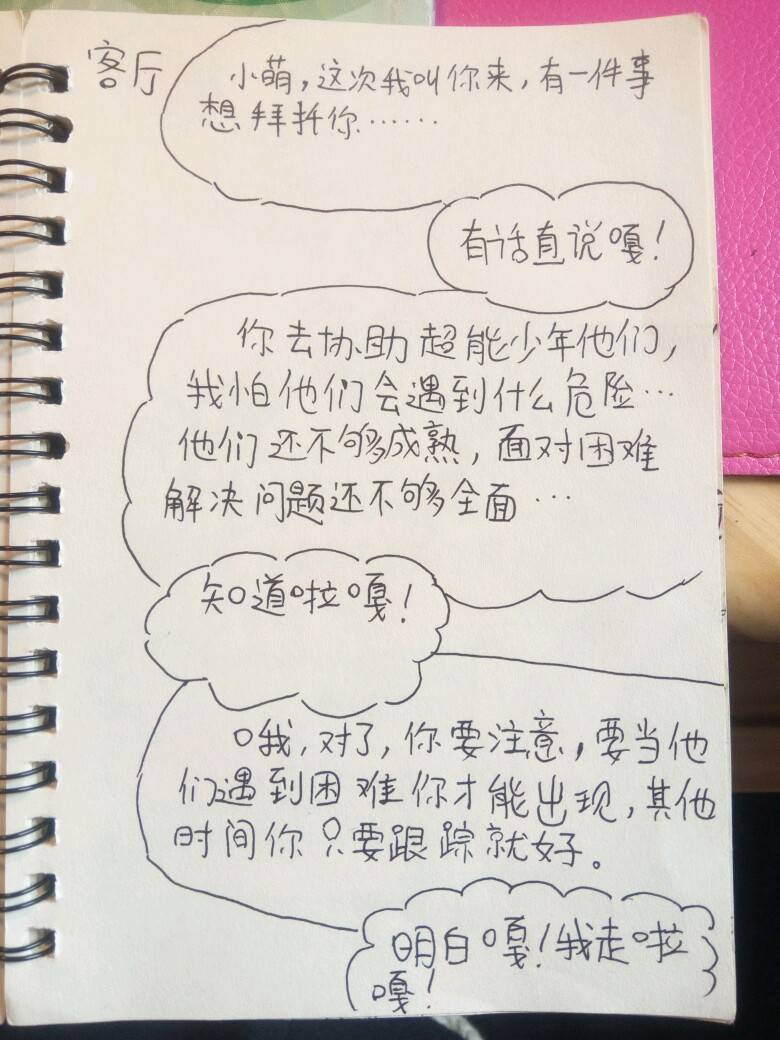 客厅
小萌，这次我叫你来，有一件事
想拜托你……
有话直说嘎！
你去协助超能少年他们，
我怕他们会遇到什么危险…
他们还不够成熟，面对困难
解决问题还不够全面…
知道啦嘎！
哦，对了，你要注意，要当他
们遇到困难你才能出现，其他
时间你只要跟踪就好。
明白嘎！我走啦
嘎！